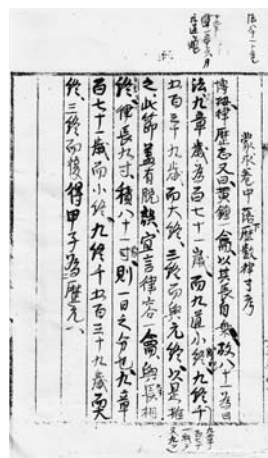 蒙求卷中落下歷數律寸考
博按律歷志又曰黃鐘一龠以其長自乘故八十一為日
法九章歲為百七十一歲而九道小終九終千
五百三十九歲而大終三終而與元終以是推
之此節蓋有脫誤宜言律容一龠與長相
終律長九寸積八十一寸則一日之分也九章
百七十一歲而小終九終千五百三十九歲而大
終三終而復得甲子為歷元